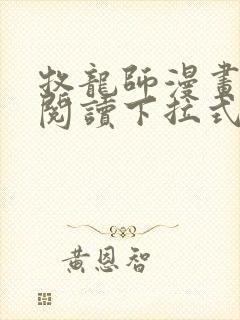 牧龍師漫畫
閱讀下拉式
黃恩智